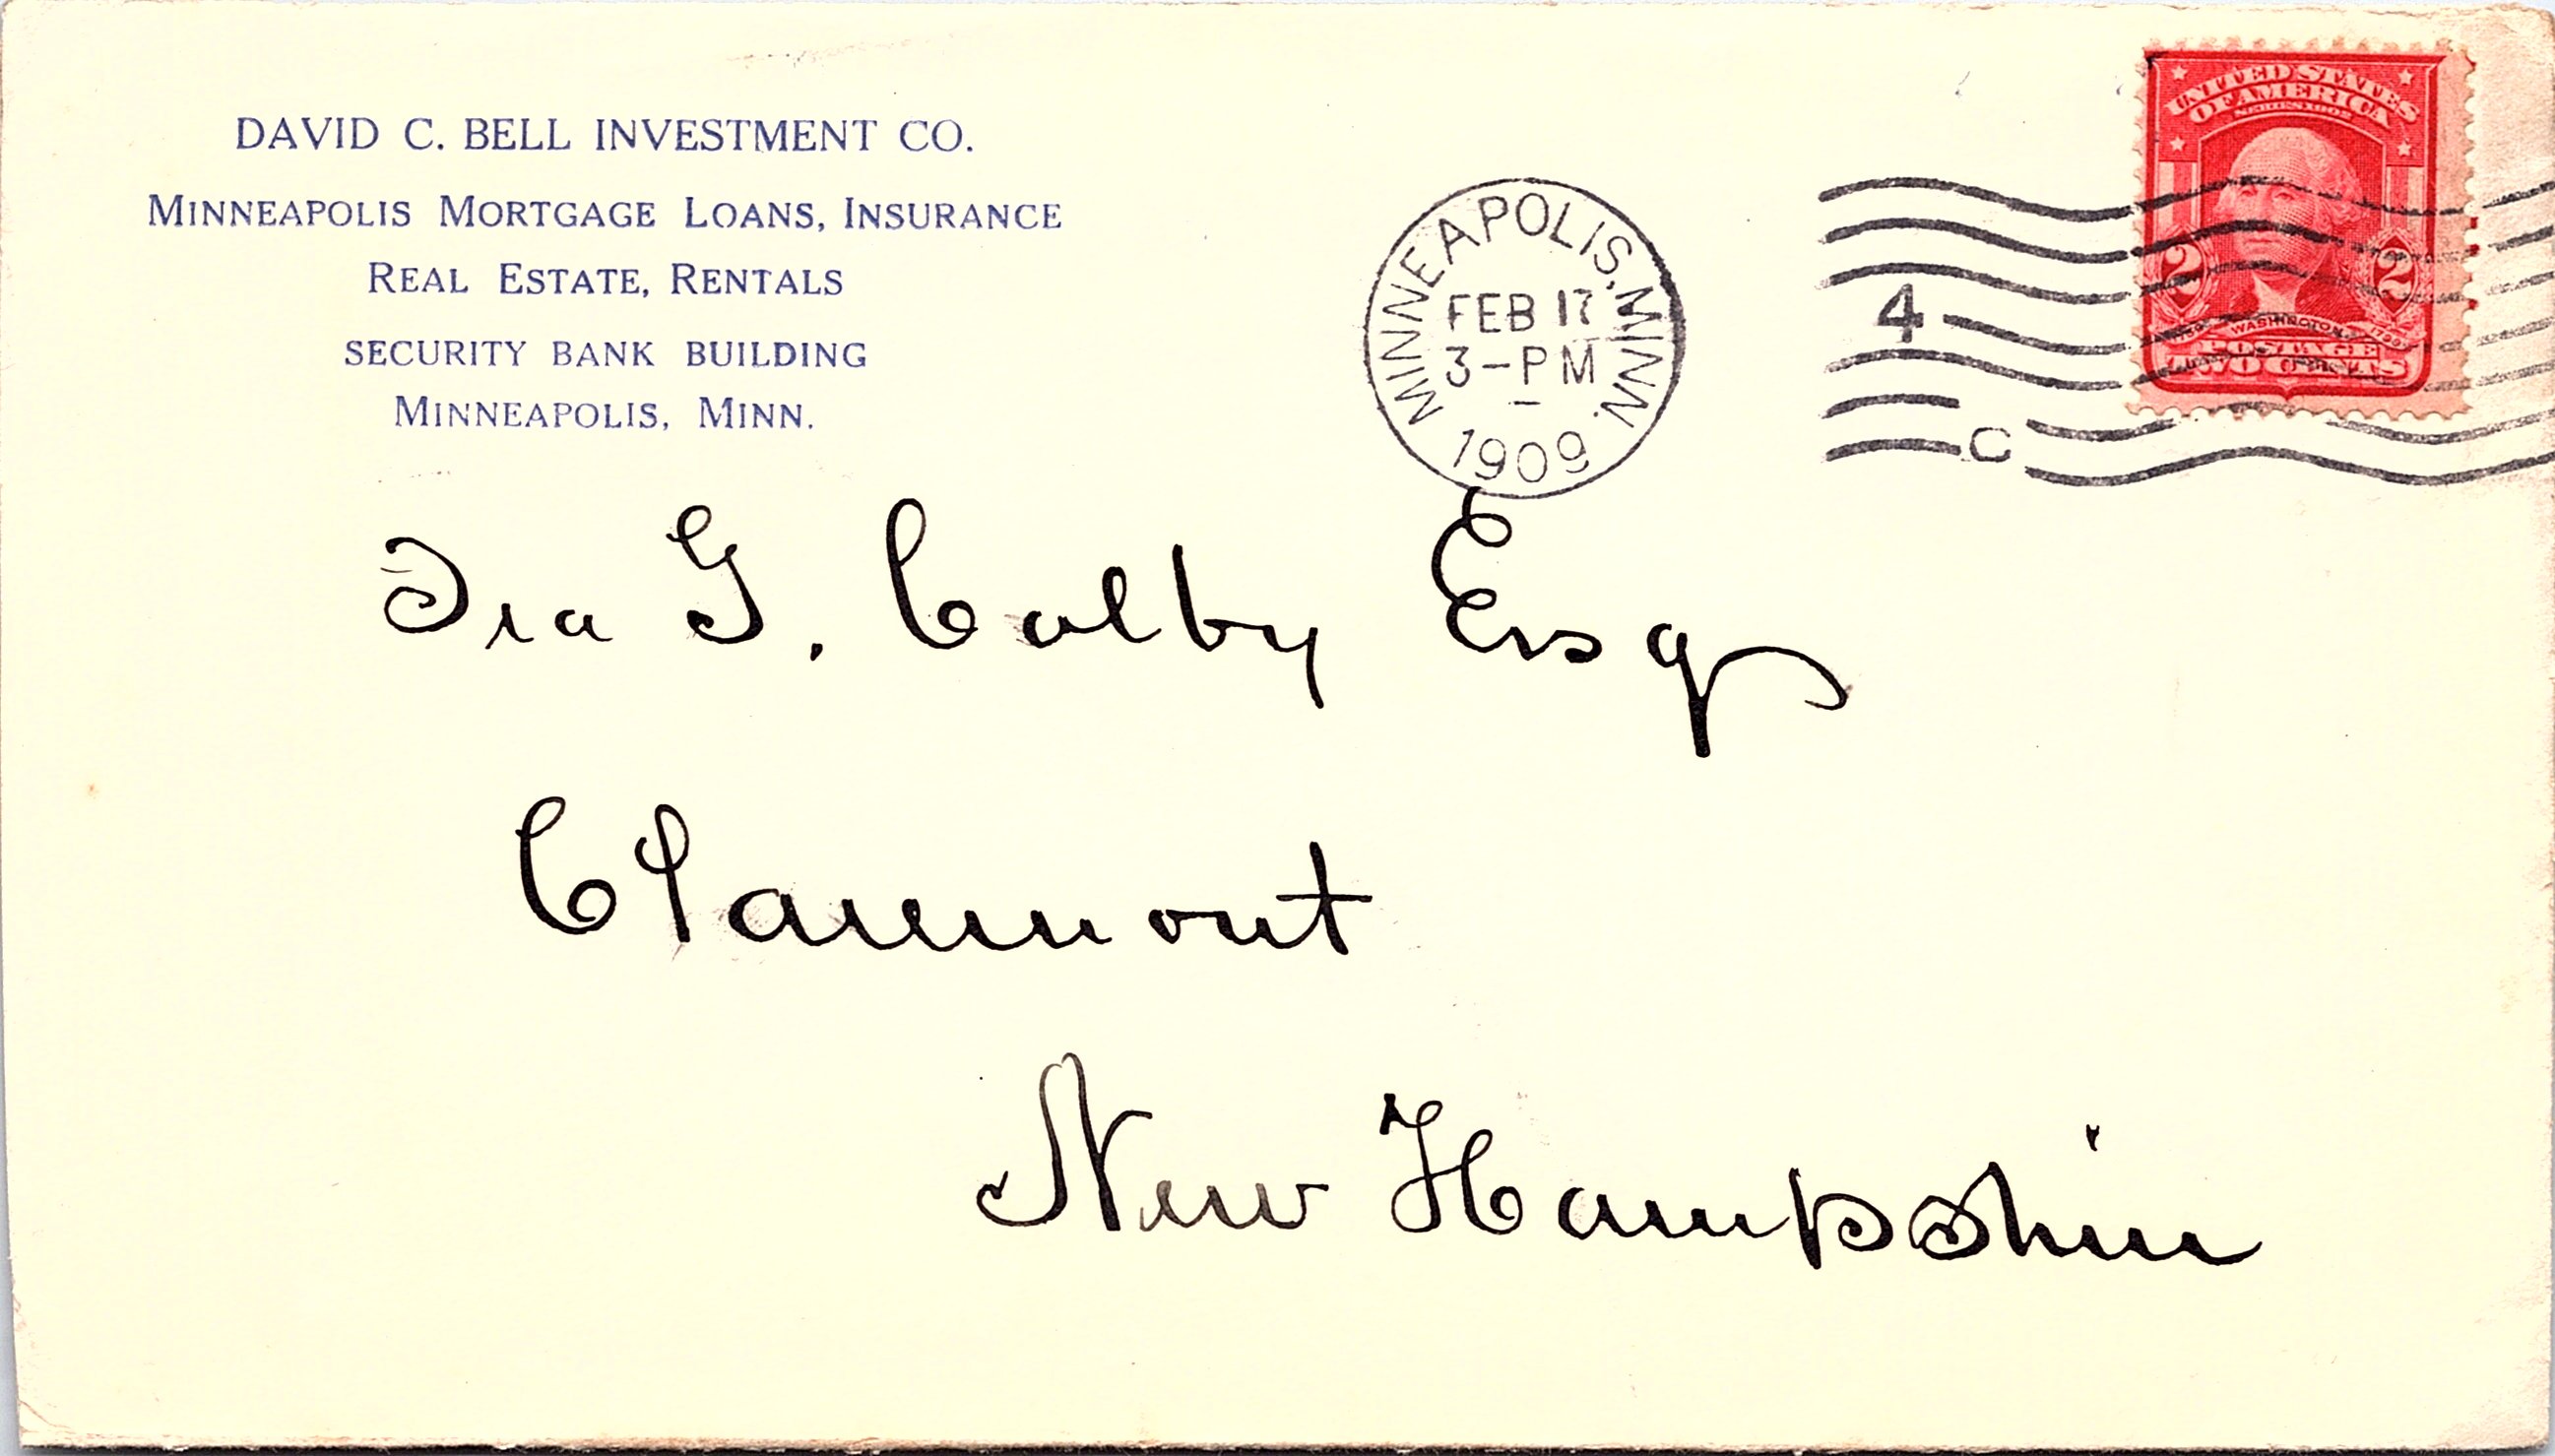 DAVID C. BELL INVESTMENT CO.
MINNEAPOLIS MORTGAGE LOANS, INSURANCE
REAL ESTATE, RENTALS
SECURITY BANK BUILDING
MINNEAPOLIS, MINN.
MINNEAPOLIS, MINN.
FEB 17
3-PM
1909
4
C
UNITED STATES
OF AMERICA
2 2
WASHINGTON
POSTAGE
TWO CENTS
Ira G. Colby Esq
Claremont
New Hampshire